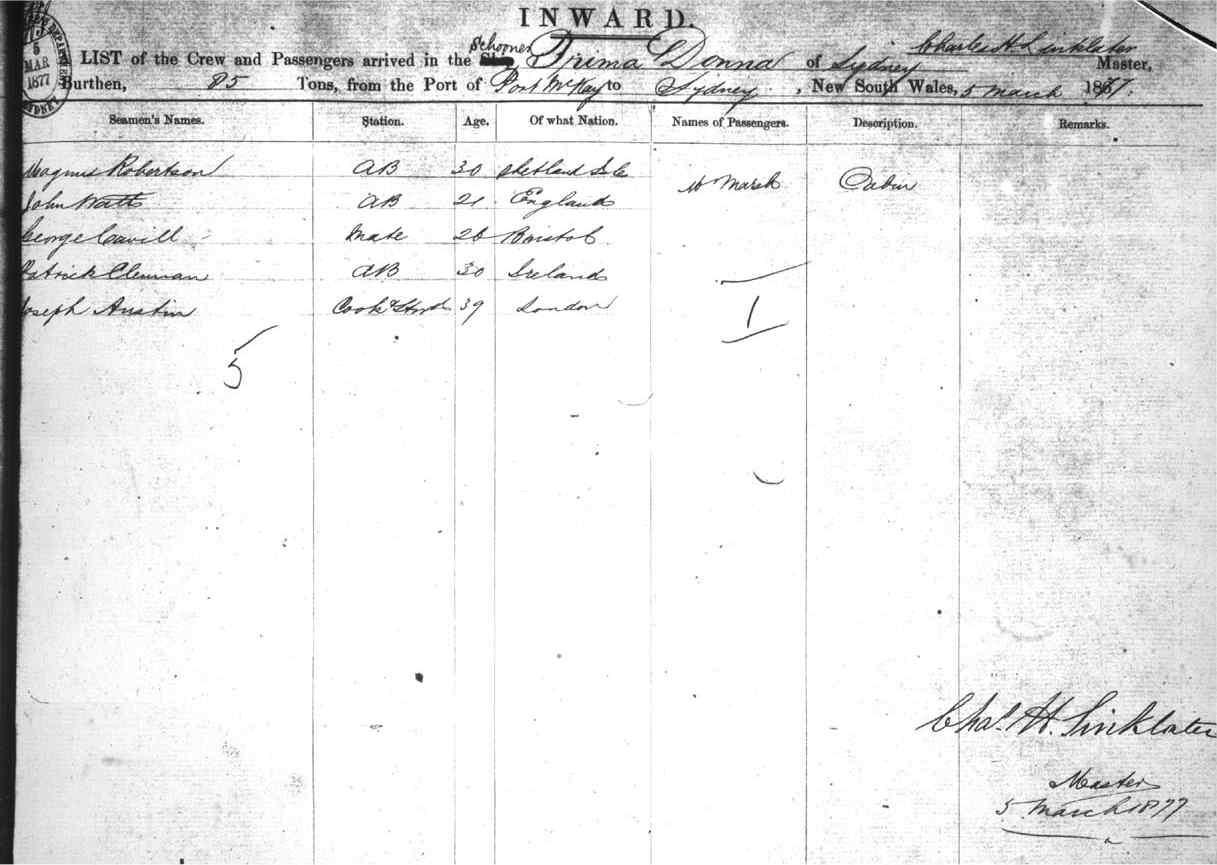 INWARD.
5
MAR
1877
SYDNEY
Schooner Charles H Linklater
LIST of the Crew and Passengers arrived in the Ship Prima Donna of Sydney Master,
Burthen, 85 Tons, from the Port of Port McKay to Sydney, New South Wales, 5 March 1877.
Seamen's Names. Station. Age. Of what Nation. Names of Passengers. Description. Remarks.
Magnus Robertson AB 30 Shetland Isle
Mr Marsh Cabin
John Watts AB 21 England
George Cavill Mate 26 Bristol
Patrick AB 30 Ireland
Joseph Austin Cook & Stwd 39 London
1
5
Chas. H. Linklater
Master
5 March 1877